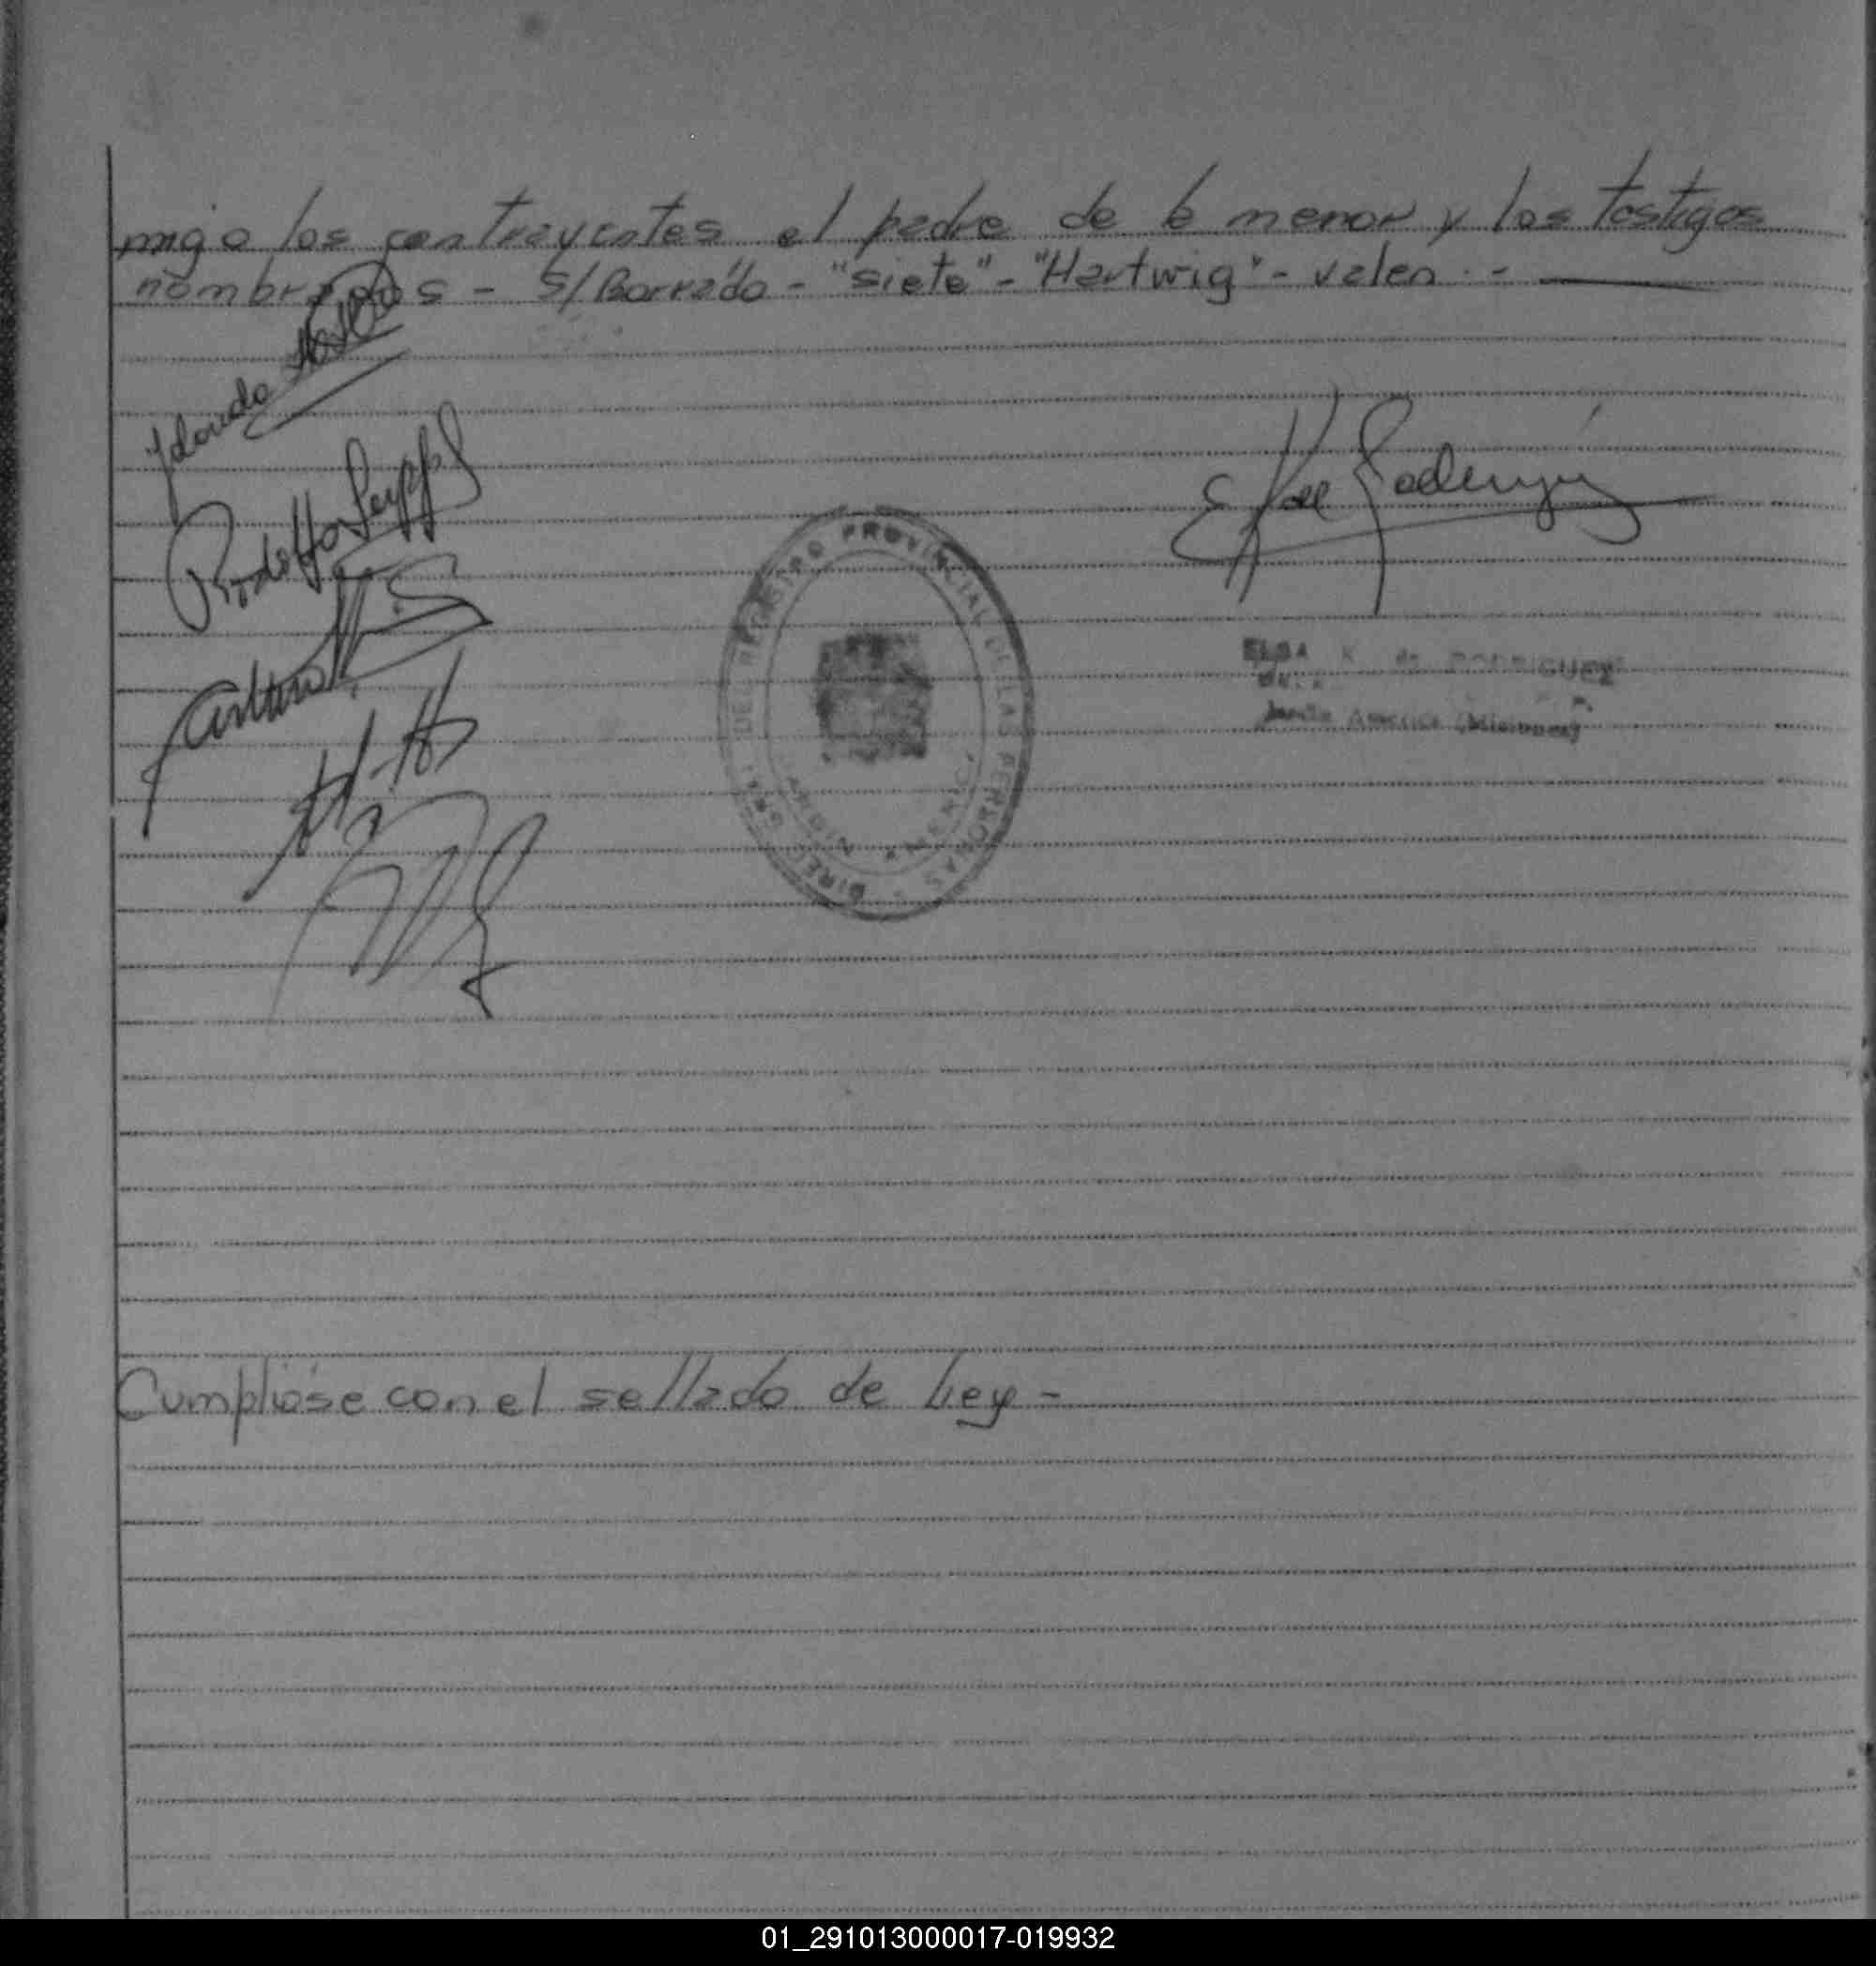 migo los contrayentes el padre de la menor y los testigos
nombrados - S/Borrado - "Siete" - "Hartwig" - Valen. -
Rodolfo
Arturo
DIREC. GRAL. DEL REGISTRO PROVINCIAL DE LAS PERSONAS
JARDIN AMERICA
ELSA K. de RODRIGUEZ
Jardín América (Misiones)
Cumplióse con el sellado de Ley -
01_291013000017-019932